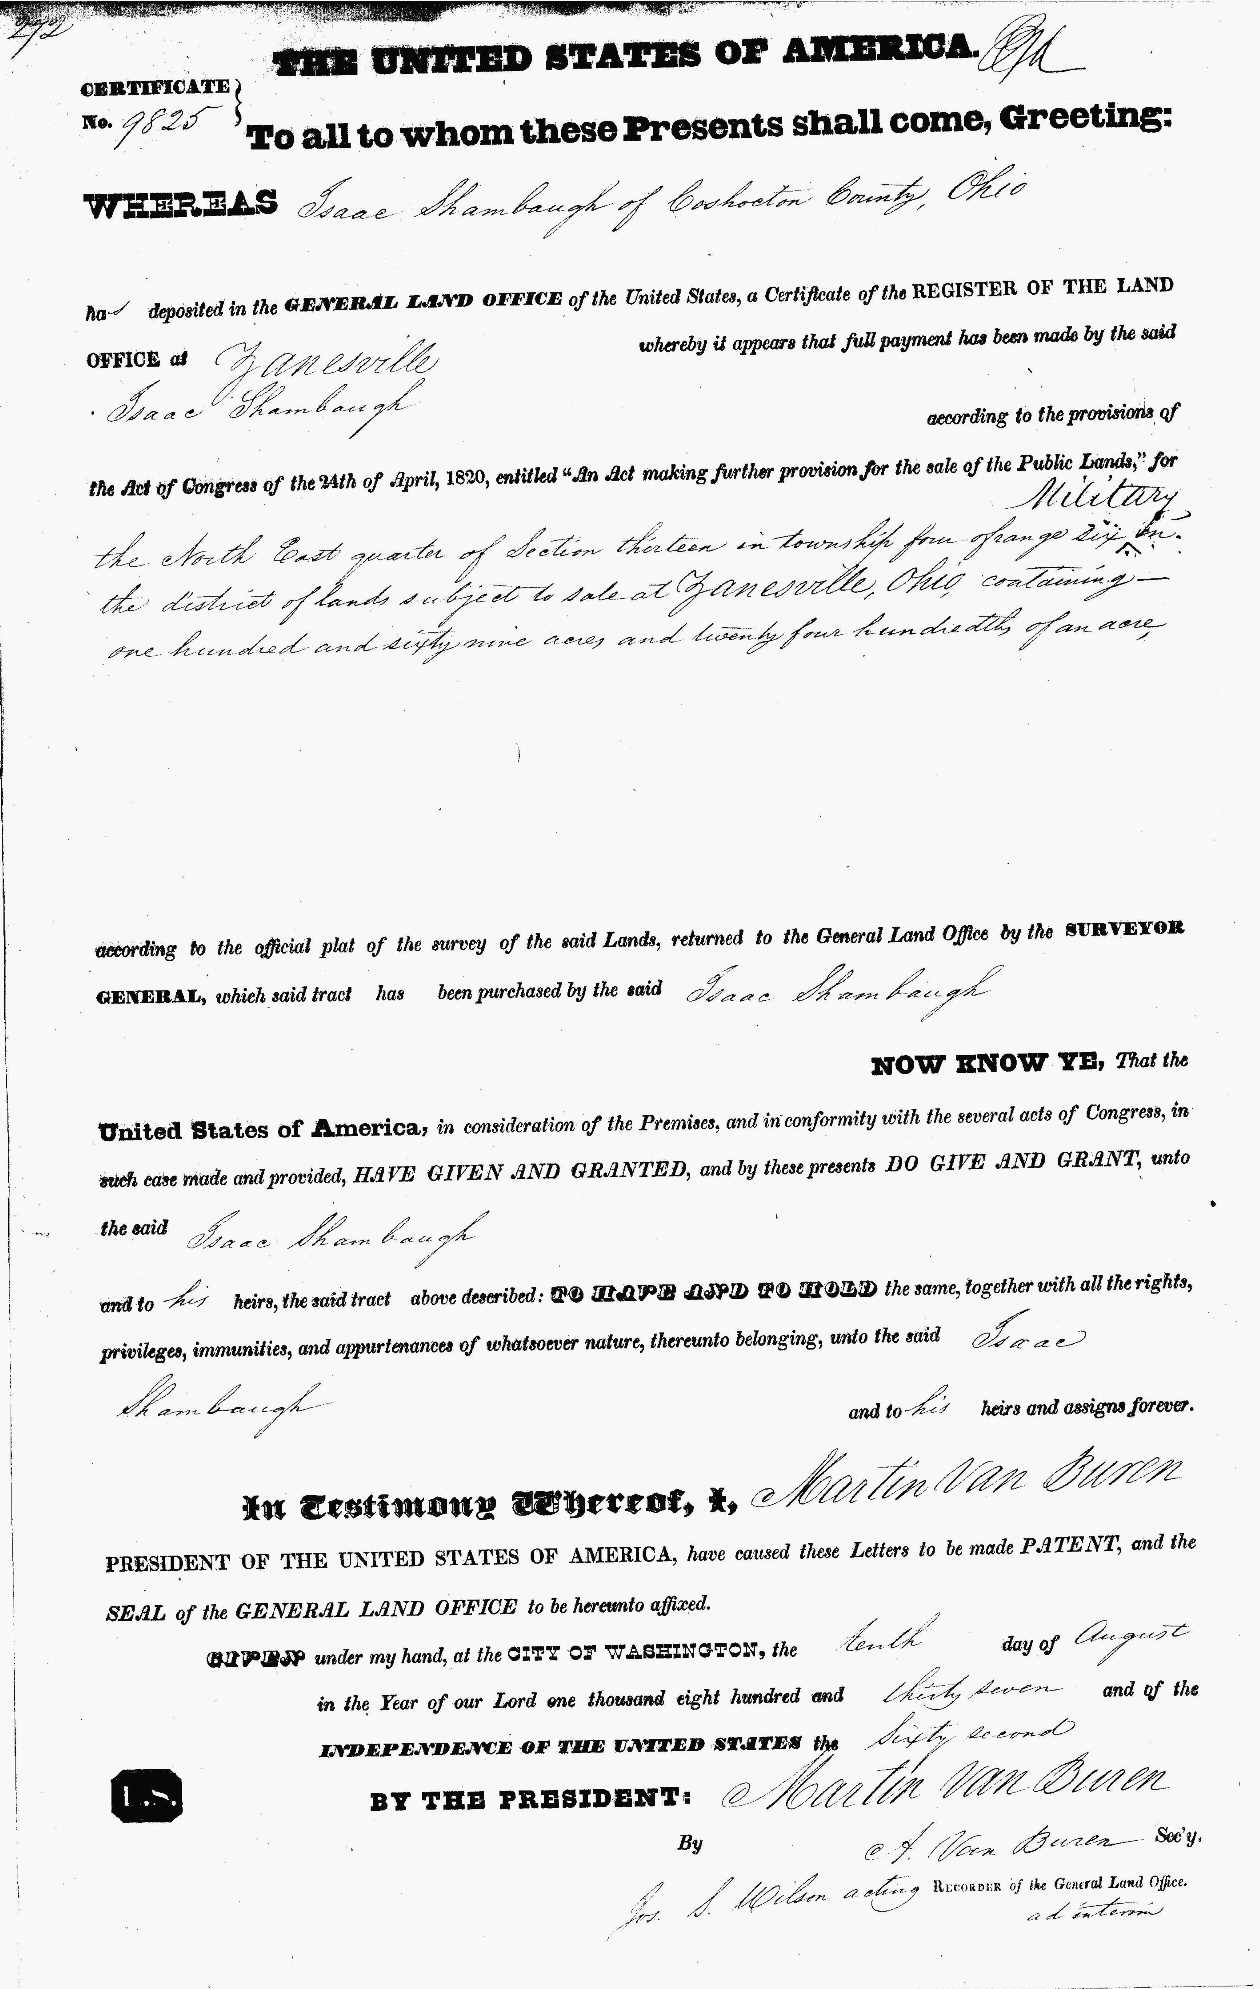 272
THE UNITED STATES OF AMERICA.
CERTIFICATE
No. 9825
To all to whom these Presents shall come, Greeting:
WHEREAS Isaac Shambaugh of Coshocton County, Ohio
ha✓ deposited in the GENERAL LAND OFFICE of the United States, a Certificate of the REGISTER OF THE LAND
OFFICE at Zanesville whereby it appears that full payment has been made by the said
Isaac Shambaugh according to the provisions of
the Act of Congress of the 24th of April, 1820, entitled "An Act making further provision for the sale of the Public Lands," for
Military
the North East quarter of Section thirteen in township four of range six in
the district of lands subject to sale at Zanesville, Ohio, containing
one hundred and sixty nine acres and twenty four hundredths of an acre,
according to the official plat of the survey of the said Lands, returned to the General Land Office by the SURVEYOR
GENERAL, which said tract has been purchased by the said Isaac Shambaugh
NOW KNOW YE, That the
United States of America, in consideration of the Premises, and in conformity with the several acts of Congress, in
such case made and provided, HAVE GIVEN AND GRANTED, and by these presents DO GIVE AND GRANT, unto
the said Isaac Shambaugh
and to his heirs, the said tract above described: TO HAVE AND TO HOLD the same, together with all the rights,
privileges, immunities, and appurtenances of whatsoever nature, thereunto belonging, unto the said Isaac
Shambaugh and to his heirs and assigns forever.
In Testimony Whereof, I, Martin Van Buren
PRESIDENT OF THE UNITED STATES OF AMERICA, have caused these Letters to be made PATENT, and the
SEAL of the GENERAL LAND OFFICE to be hereunto affixed.
GIVEN under my hand, at the CITY OF WASHINGTON, the tenth day of August
in the Year of our Lord one thousand eight hundred and thirty seven and of the
INDEPENDENCE OF THE UNITED STATES the Sixty second
L.S.
BY THE PRESIDENT: Martin Van Buren
By A. Van Buren Sec'y.
Jos. S. Wilson acting RECORDER of the General Land Office.
ad interim